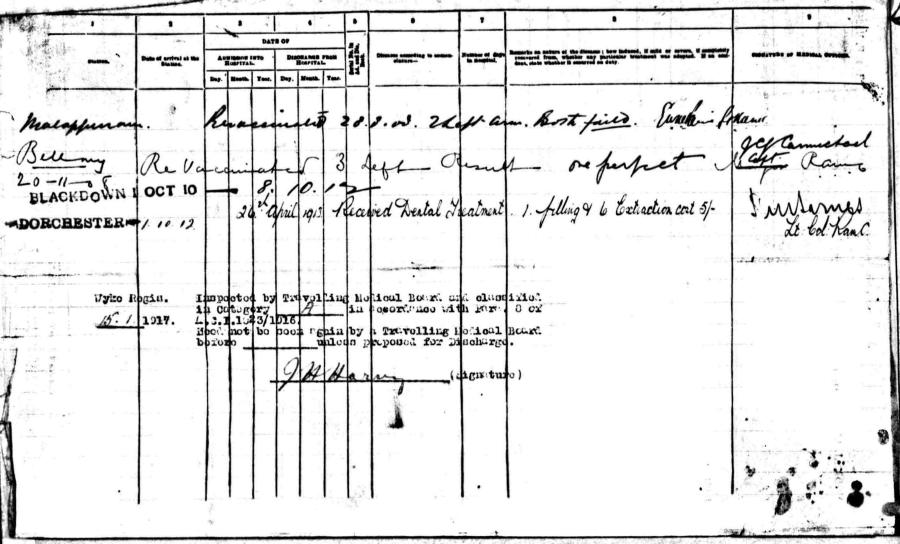 1 2 3 4 5 6 7 8 9
Station. Date of arrival at the Station. DATE OF
ADMISSION INTO HOSPITAL. DISCHARGE FROM HOSPITAL.
Day. Month. Year. Day. Month. Year.
Number of days in hospital.
Remarks on nature of the disease; how induced, if mild or severe, if completely recovered from, whether any particular treatment was adopted.
SIGNATURE OF MEDICAL OFFICER.
Malappuram. Revaccinated 28.8.08 2 Left arm. Both
Bellary Re Vaccinated 3 Left Result one perfect
20-11-08
BLACKDOWN OCT 10 8. 10. 12
DORCHESTER 1.10.12 April 1913 Received Dental Treatment. 1. filling & 6 Extraction cost 5/-
Lt Col
Wyke Regis. Inspected by Travelling Medical Board and classified
in Category A in accordance with Para. 8 of
15.1.1917. A.C.I.1023/1916.
Need not be seen again by a Travelling Medical Board
before unless proposed for Discharge.
J H Harvey (signature)